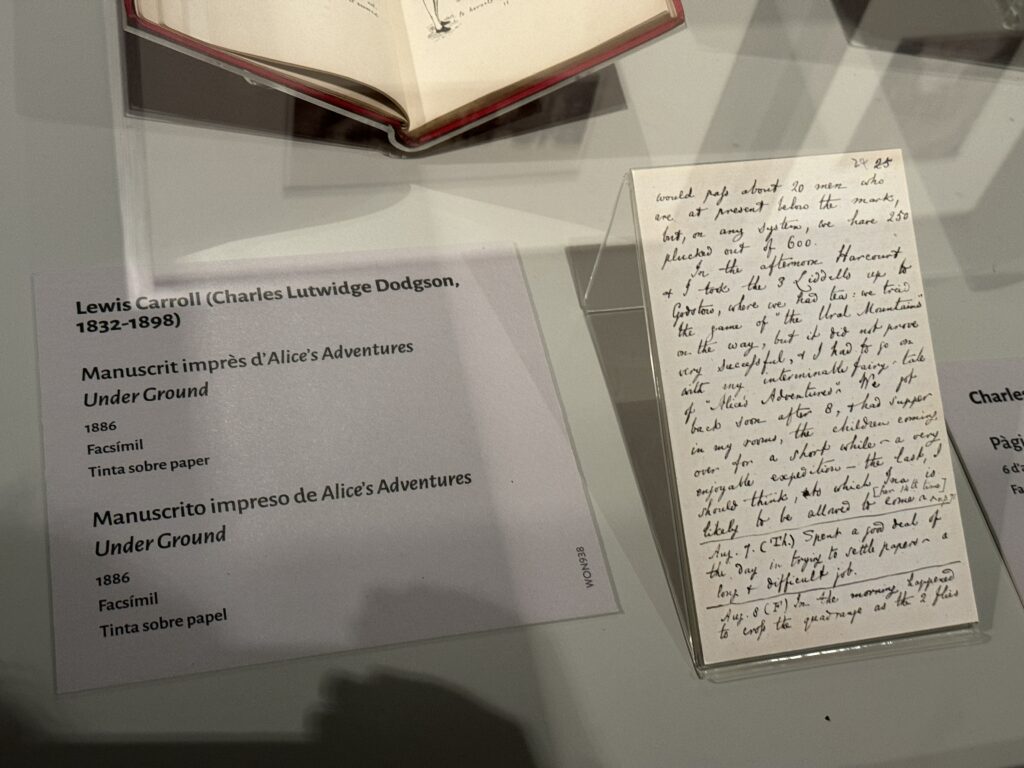 Lewis Carroll (Charles Lutwidge Dodgson,
1832-1898)
Manuscrit imprès d'Alice's Adventures
Under Ground
1886
Facsímil
Tinta sobre paper
Manuscrito impreso de Alice's Adventures
Under Ground
1886
Facsímil
Tinta sobre papel
WON938
24 25
would pass about 20 men who
are at present below the mark,
but, on any system, we have 250
plucked out of 600.
In the afternoon Harcourt
& I took the 3 Liddells up to
Godstow, where we had tea: we tried
the game of "the Ural Mountains"
on the way, but it did not prove
very successful, & I had to go on
with my interminable fairy-tale
of "Alice's Adventures". We got
back soon after 8, & had supper
in my rooms, the children coming
over for a short while - a very
enjoyable expedition - the last, I
should think, to which Ina is
likely to be allowed to come
Aug. 7. (Th.) Spent a good deal of
the day in trying to settle papers - a
long & difficult job.
Aug. 8 (F) In the morning happened
to cross the quadrangle as the 2
Charles
Pàgi
6 d'a
Fa